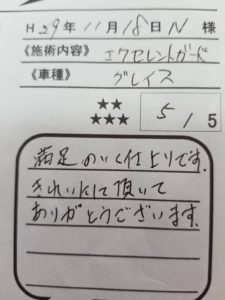 H29年11月18日 N 様
《施術内容》エクセレントガード
《車種》グレイス
★★
★★★ 5/5
満足のいく仕上りです。
きれいにして頂いて
ありがとうございます。